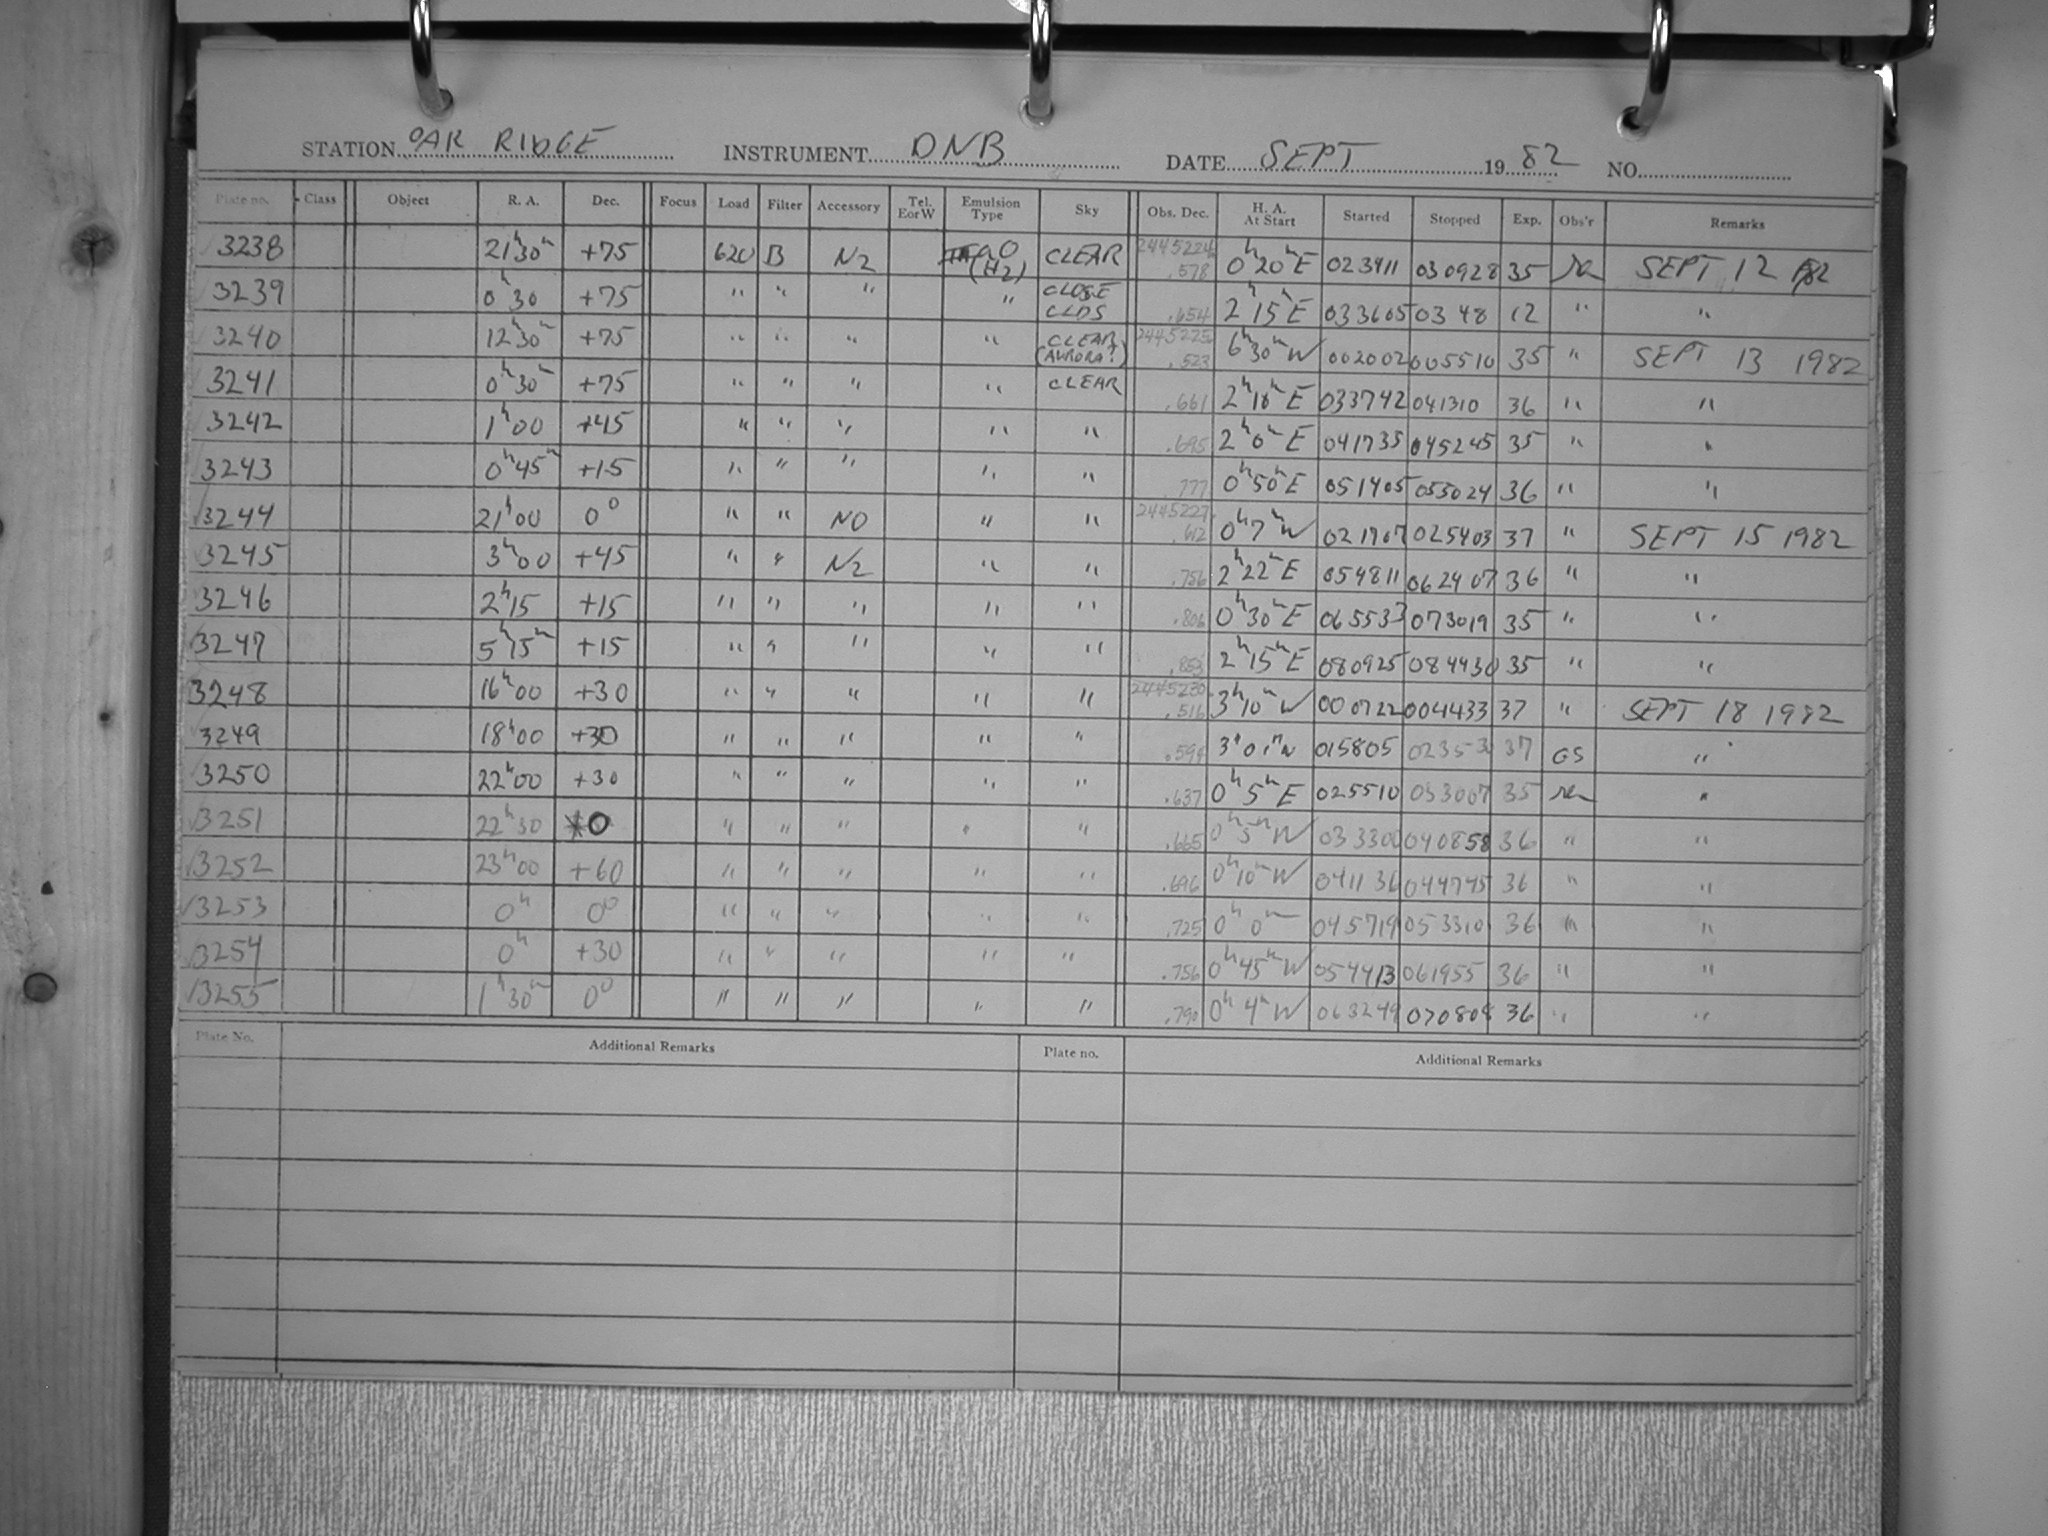 STATION OAK RIDGE INSTRUMENT DNB DATE SEPT 1982 NO.
Plate no. Class Object R. A. Dec. Focus Load Filter Accessory Tel. E or W Emulsion Type Sky Obs. Dec. H. A. At Start Started Stopped Exp. Obs'r Remarks
3238 21h30m +75 620 B N2 IIaO (H2) CLEAR 2445224 .578 0h20mE 023411 030928 35 SEPT 12 82
3239 0h30 +75 " " " " CLOSE CLDS .654 2h15mE 033605 0348 12 " "
3240 12h30m +75 " " " " CLEAR (AURORA?) 2445225 .523 6h30mW 002002 005510 35 " SEPT 13 1982
3241 0h30m +75 " " " " CLEAR .661 2h10mE 033742 041310 36 " "
3242 1h00 +45 " " " " " .695 2h0mE 041735 045245 35 " "
3243 0h45m +15 " " " " " .777 0h50mE 051405 055024 36 " "
3244 21h00 0° " " NO " " 2445227 .612 0h7mW 021707 025403 37 " SEPT 15 1982
3245 3h00 +45 " " N2 " " .756 2h22mE 054811 062407 36 " "
3246 2h15 +15 " " " " " .806 0h30mE 065533 073019 35 " "
3247 5h15m +15 " " " " " .853 2h15mE 080925 084430 35 " "
3248 16h00 +30 " " " " " 2445230 .516 3h10mW 000722 004433 37 " SEPT 18 1982
3249 18h00 +30 " " " " " .594 3h01mW 015805 02353 37 GS "
3250 22h00 +30 " " " " " .637 0h5mE 025510 033007 35 "
3251 22h30 0 " " " " " .665 0h5mW 033300 040858 36 " "
3252 23h00 +60 " " " " " .696 0h10mW 041136 044745 36 " "
3253 0h 0° " " " " " .725 0h0m 045719 053310 36 " "
3254 0h +30 " " " " " .756 0h45mW 054413 061955 36 " "
3255 1h30m 0° " " " " " .790 0h4mW 063249 070808 36 " "
Plate No. Additional Remarks Plate no. Additional Remarks